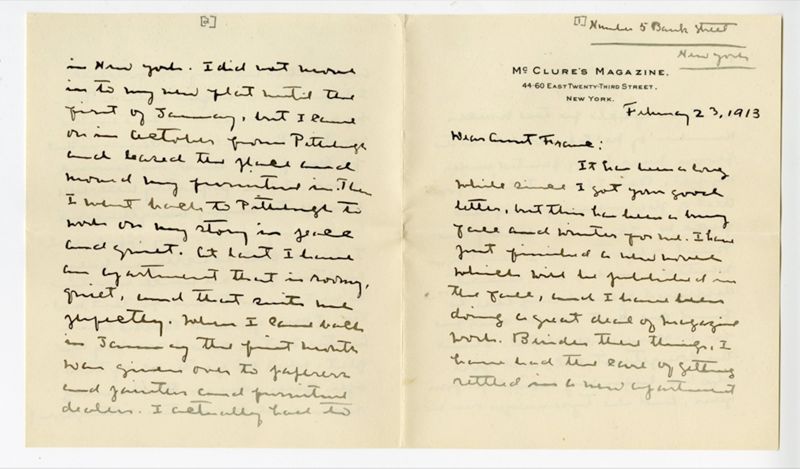 [1]
Number 5 Bank Street
New York
McCLURE'S MAGAZINE.
44-60 EAST TWENTY-THIRD STREET.
NEW YORK.
February 23, 1913
Dear Aunt Franc:
It has been a long
while since I got your good
letter, but this has been a busy
fall and winter for me. I have
just finished a new novel
which will be published in
the fall, and I have been
doing a great deal of magazine
work. Besides these things, I
have had the care of getting
settled in a new apartment
[2]
in New York. I did not move
in to my new flat until the
first of January, but I came
on in October from Pittsburgh
and leased the place and
moved my furniture in. Then
I went back to Pittsburgh to
work on my story in peace
and quiet. At last I have
an apartment that is roomy,
quiet, and that suits me
perfectly. When I came back
in January the first month
was given over to paperers
and painters and furniture
dealers. I actually had to